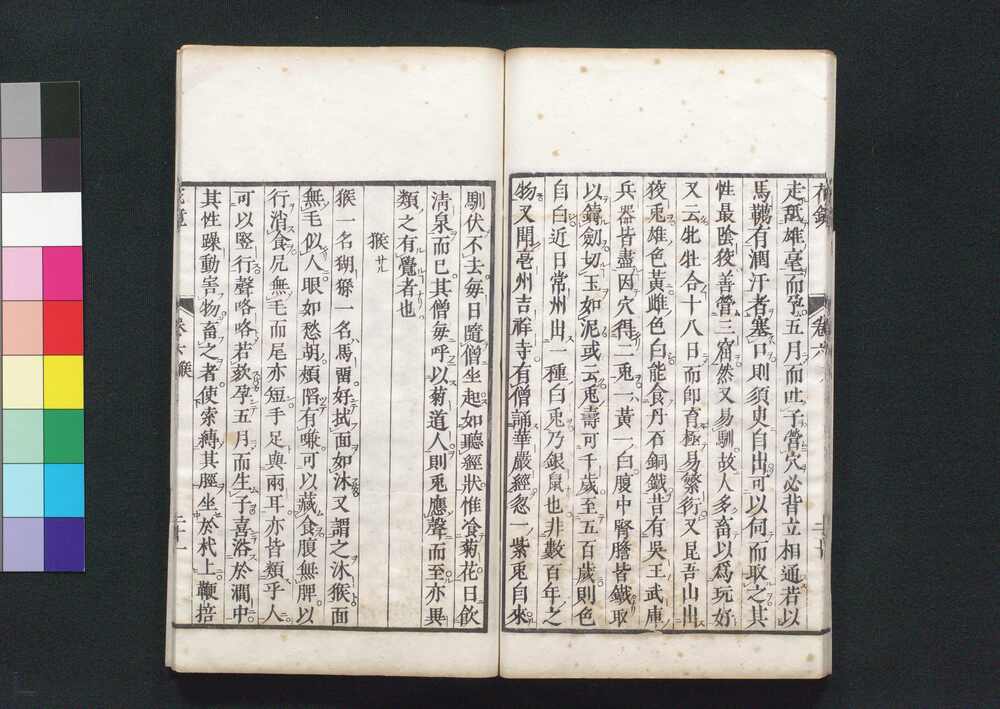 走舐雄毫而孕五月而吐子營穴必背立相通若以
馬韉有潤汗者塞口則須臾自出可以何而取之其
性最陰狡善營三窟然又易馴故人多畜以爲玩好
又云牝牡合十八日而卽育極易繁衍又昆吾山出
狡兎雄色黃雌色白能食丹石銅鐵昔有吳王武庫
兵器皆盡因穴得二兎一黃一白腹中腎膽皆鐵取
以鑄劍切玉如泥或云兎壽可千歲至五百歲則色
自白近日常州出一種白兎乃銀鼠也非數百年之
物又聞亳州吉祥寺有僧誦華嚴經忽一紫兎自來
卷六
二十
馴伏不去每日隨僧坐起如聽經狀惟飡菊花日飲
清泉而已其僧每呼以菊道人則兎應聲而至亦異
類之有覺者也
猴 サル
猴一名猢猻一名馬留好拭面如沐又謂之沐猴面
無毛似人眼如愁胡頰陷有嗛可以藏食腹無脾以
行消食尻無毛而尾亦短手足與兩耳亦皆類乎人
可以竪行聲咯咯若欬孕五月而生子喜浴於澗中
其性躁動害物畜之者使索縛其脛坐於杙上鞭掊
卷六 猴
二十一